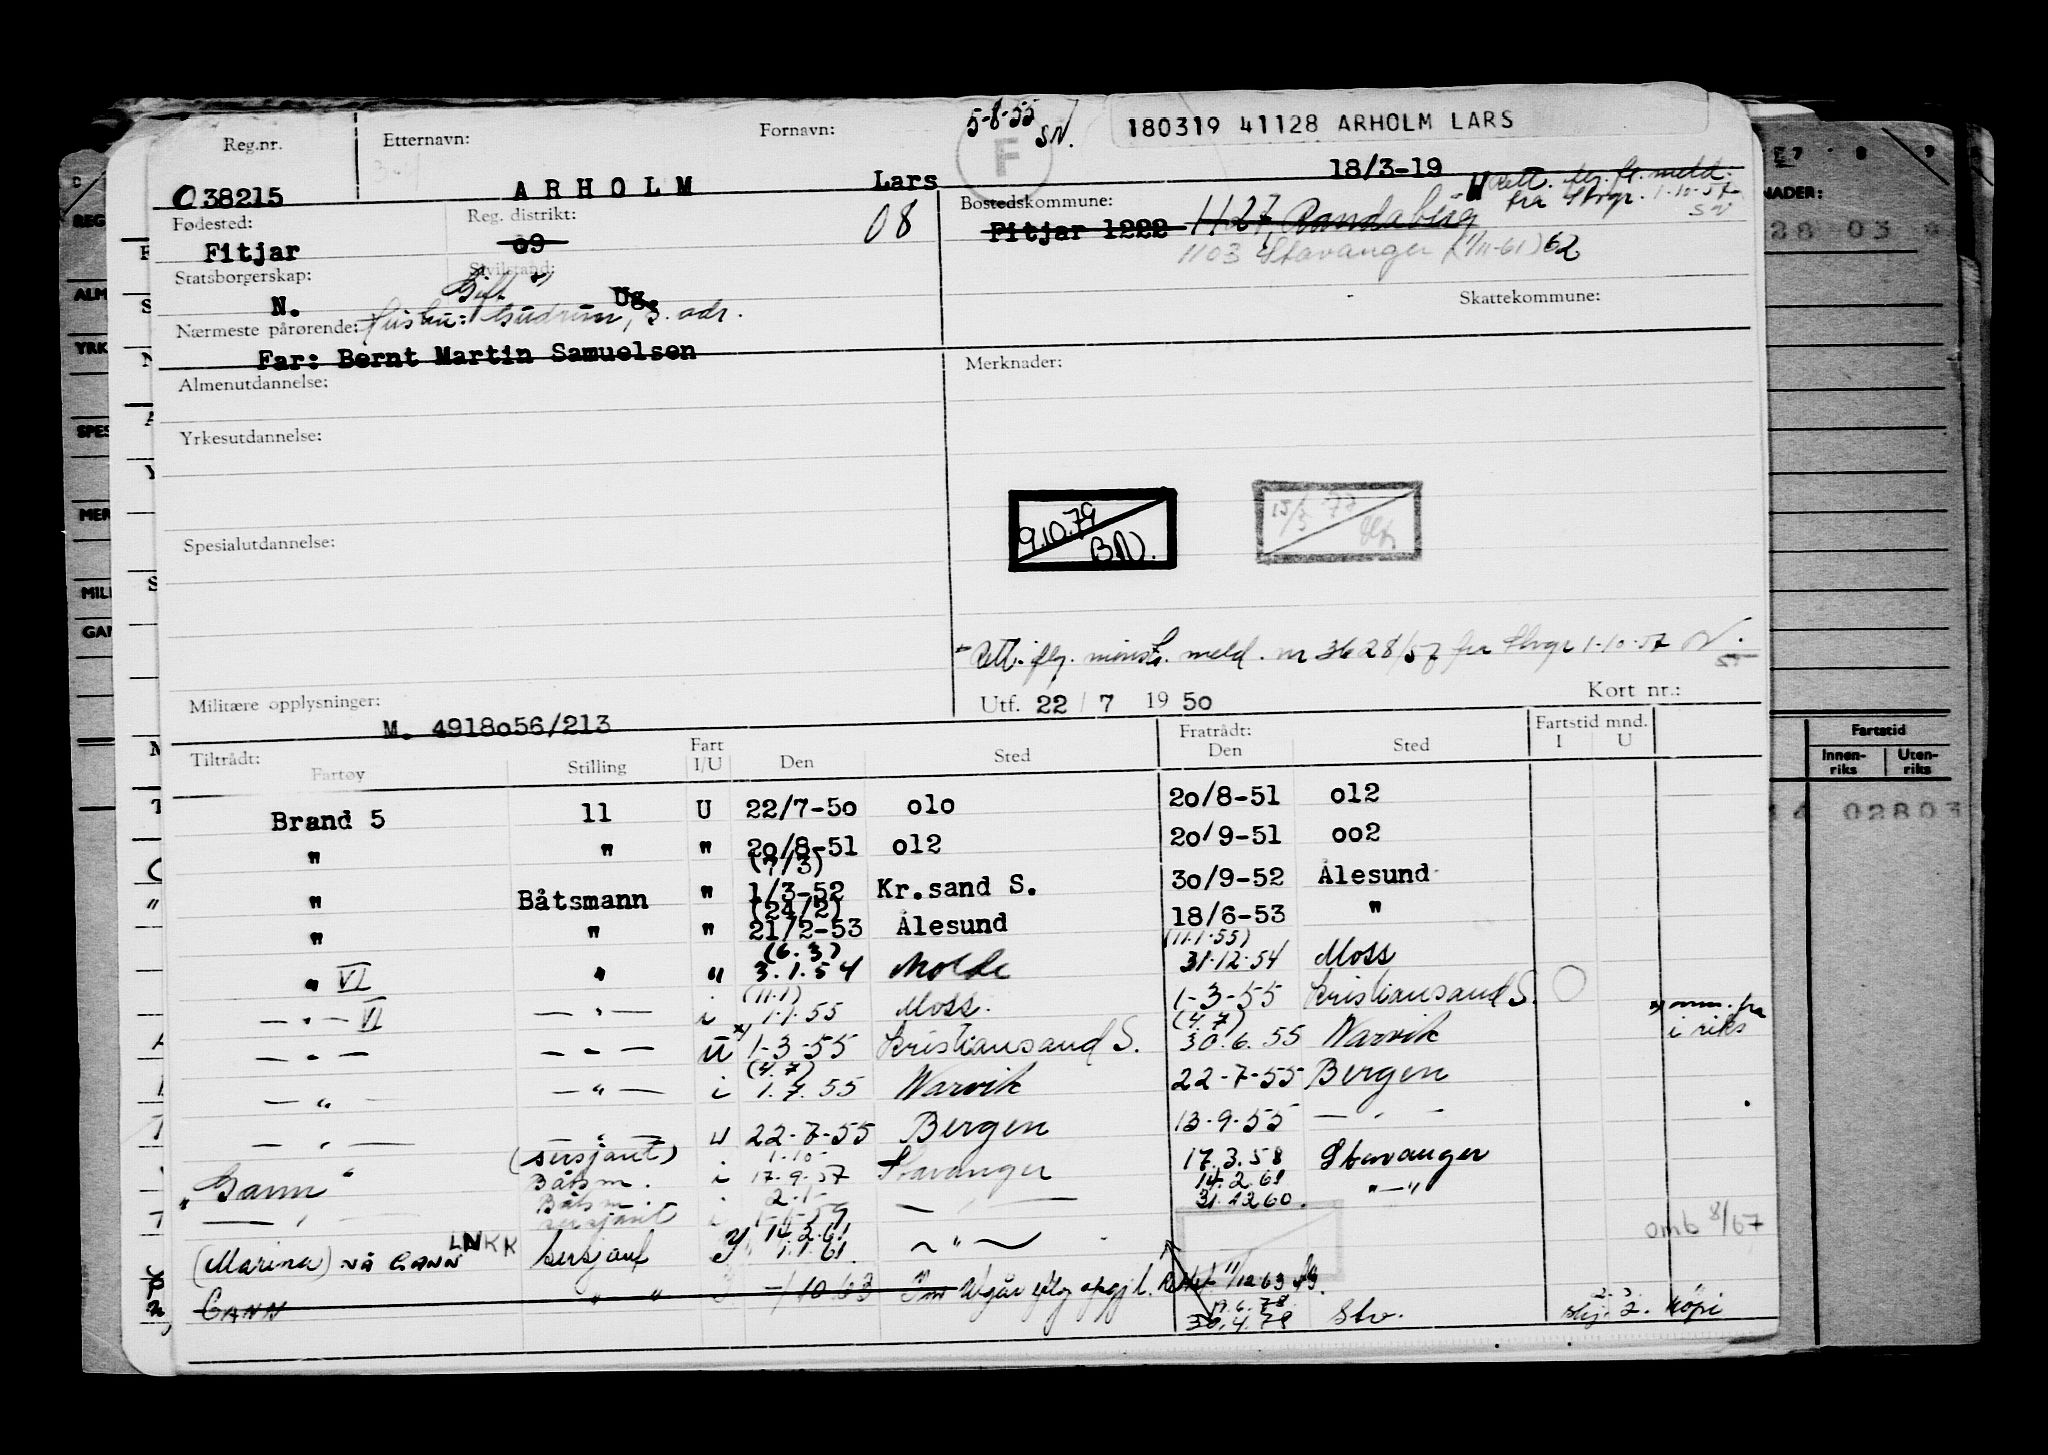 5-8-55
SN.
F
180319 41128 ARHOLM LARS
Reg.nr.
Etternavn:
Fornavn:
038215
ARHOLM
Lars
18/3-19
Rett. flg. fl. meld.
fra Stvgr. 1-10-57
SN
Fødested:
Reg. distrikt:
08
Bostedskommune:
Fitjar
09
Fitjar 1222 1127 Randaberg
1103 Stavanger (1/11-61) 62
Statsborgerskap:
Sivilstand:
N.
Gift
Ug.
Skattekommune:
Nærmeste pårørende: Hustru: Gudrun, s. adr.
Far: Bernt Martin Samuelsen
Almenutdannelse:
Merknader:
Yrkesutdannelse:
9.10.79
BN.
15/3 77
Spesialutdannelse:
Rett. flg. mønstr. meld. nr 3628/57 fra Stvgr 1-10-57
Militære opplysninger:
M. 4918056/213
Utf. 22 / 7 19 50
Kort nr.:
Tiltrådt:
Fartøy
Stilling
Fart
I/U
Den
Sted
Fratrådt:
Den
Sted
Fartstid mnd.
I U
Brand 5 11 U 22/7-50 010 20/8-51 012
" " " 20/8-51 012 20/9-51 002
(7/3)
" Båtsmann " 1/3-52 Kr.sand S. 30/9-52 Ålesund
(24/2)
" " " 21/2-53 Ålesund 18/6-53 "
(6.3) (11.1.55)
" VI " " 3.1.54 Molde 31.12.54 Moss
(11.1)
— " — VI — " — i 1.1.55 Moss. 1-3-55 Kristiansand S.
x) (4.7) x) omm. fra
i riks
— " — — " — U 1-3-55 Kristiansand S. 30.6.55 Narvik
(4.7)
— " — — " — i 1.7.55 Narvik 22-7-55 Bergen
— " — — " — u 22-7-55 Bergen 13-9-55 — " —
(sersjant) 1.10
"Gann" Båtsm. i 17-9-57 Stavanger 17.3.58 Stavanger
Båtsm. 2.1 14.2.61
— " — sersjant i 1-1-59 — " — 31.12.60. " — "
omb 8/67
LNKK 14.2.61
(Marina) nå GANN sersjant 1.1.61 — " —
GANN " " 1/10 63 Utgår iflg oppgj. Rettet 11/12-63
19.6.78
30.4.79 Stv.
2.3.
2. Kopi
REG
ALM
YRK
SPES
MER
MILI
GAN
E7 8 9
NADER:
28 03
Fartstid
Innen-
riks
Uten-
riks
14 02803